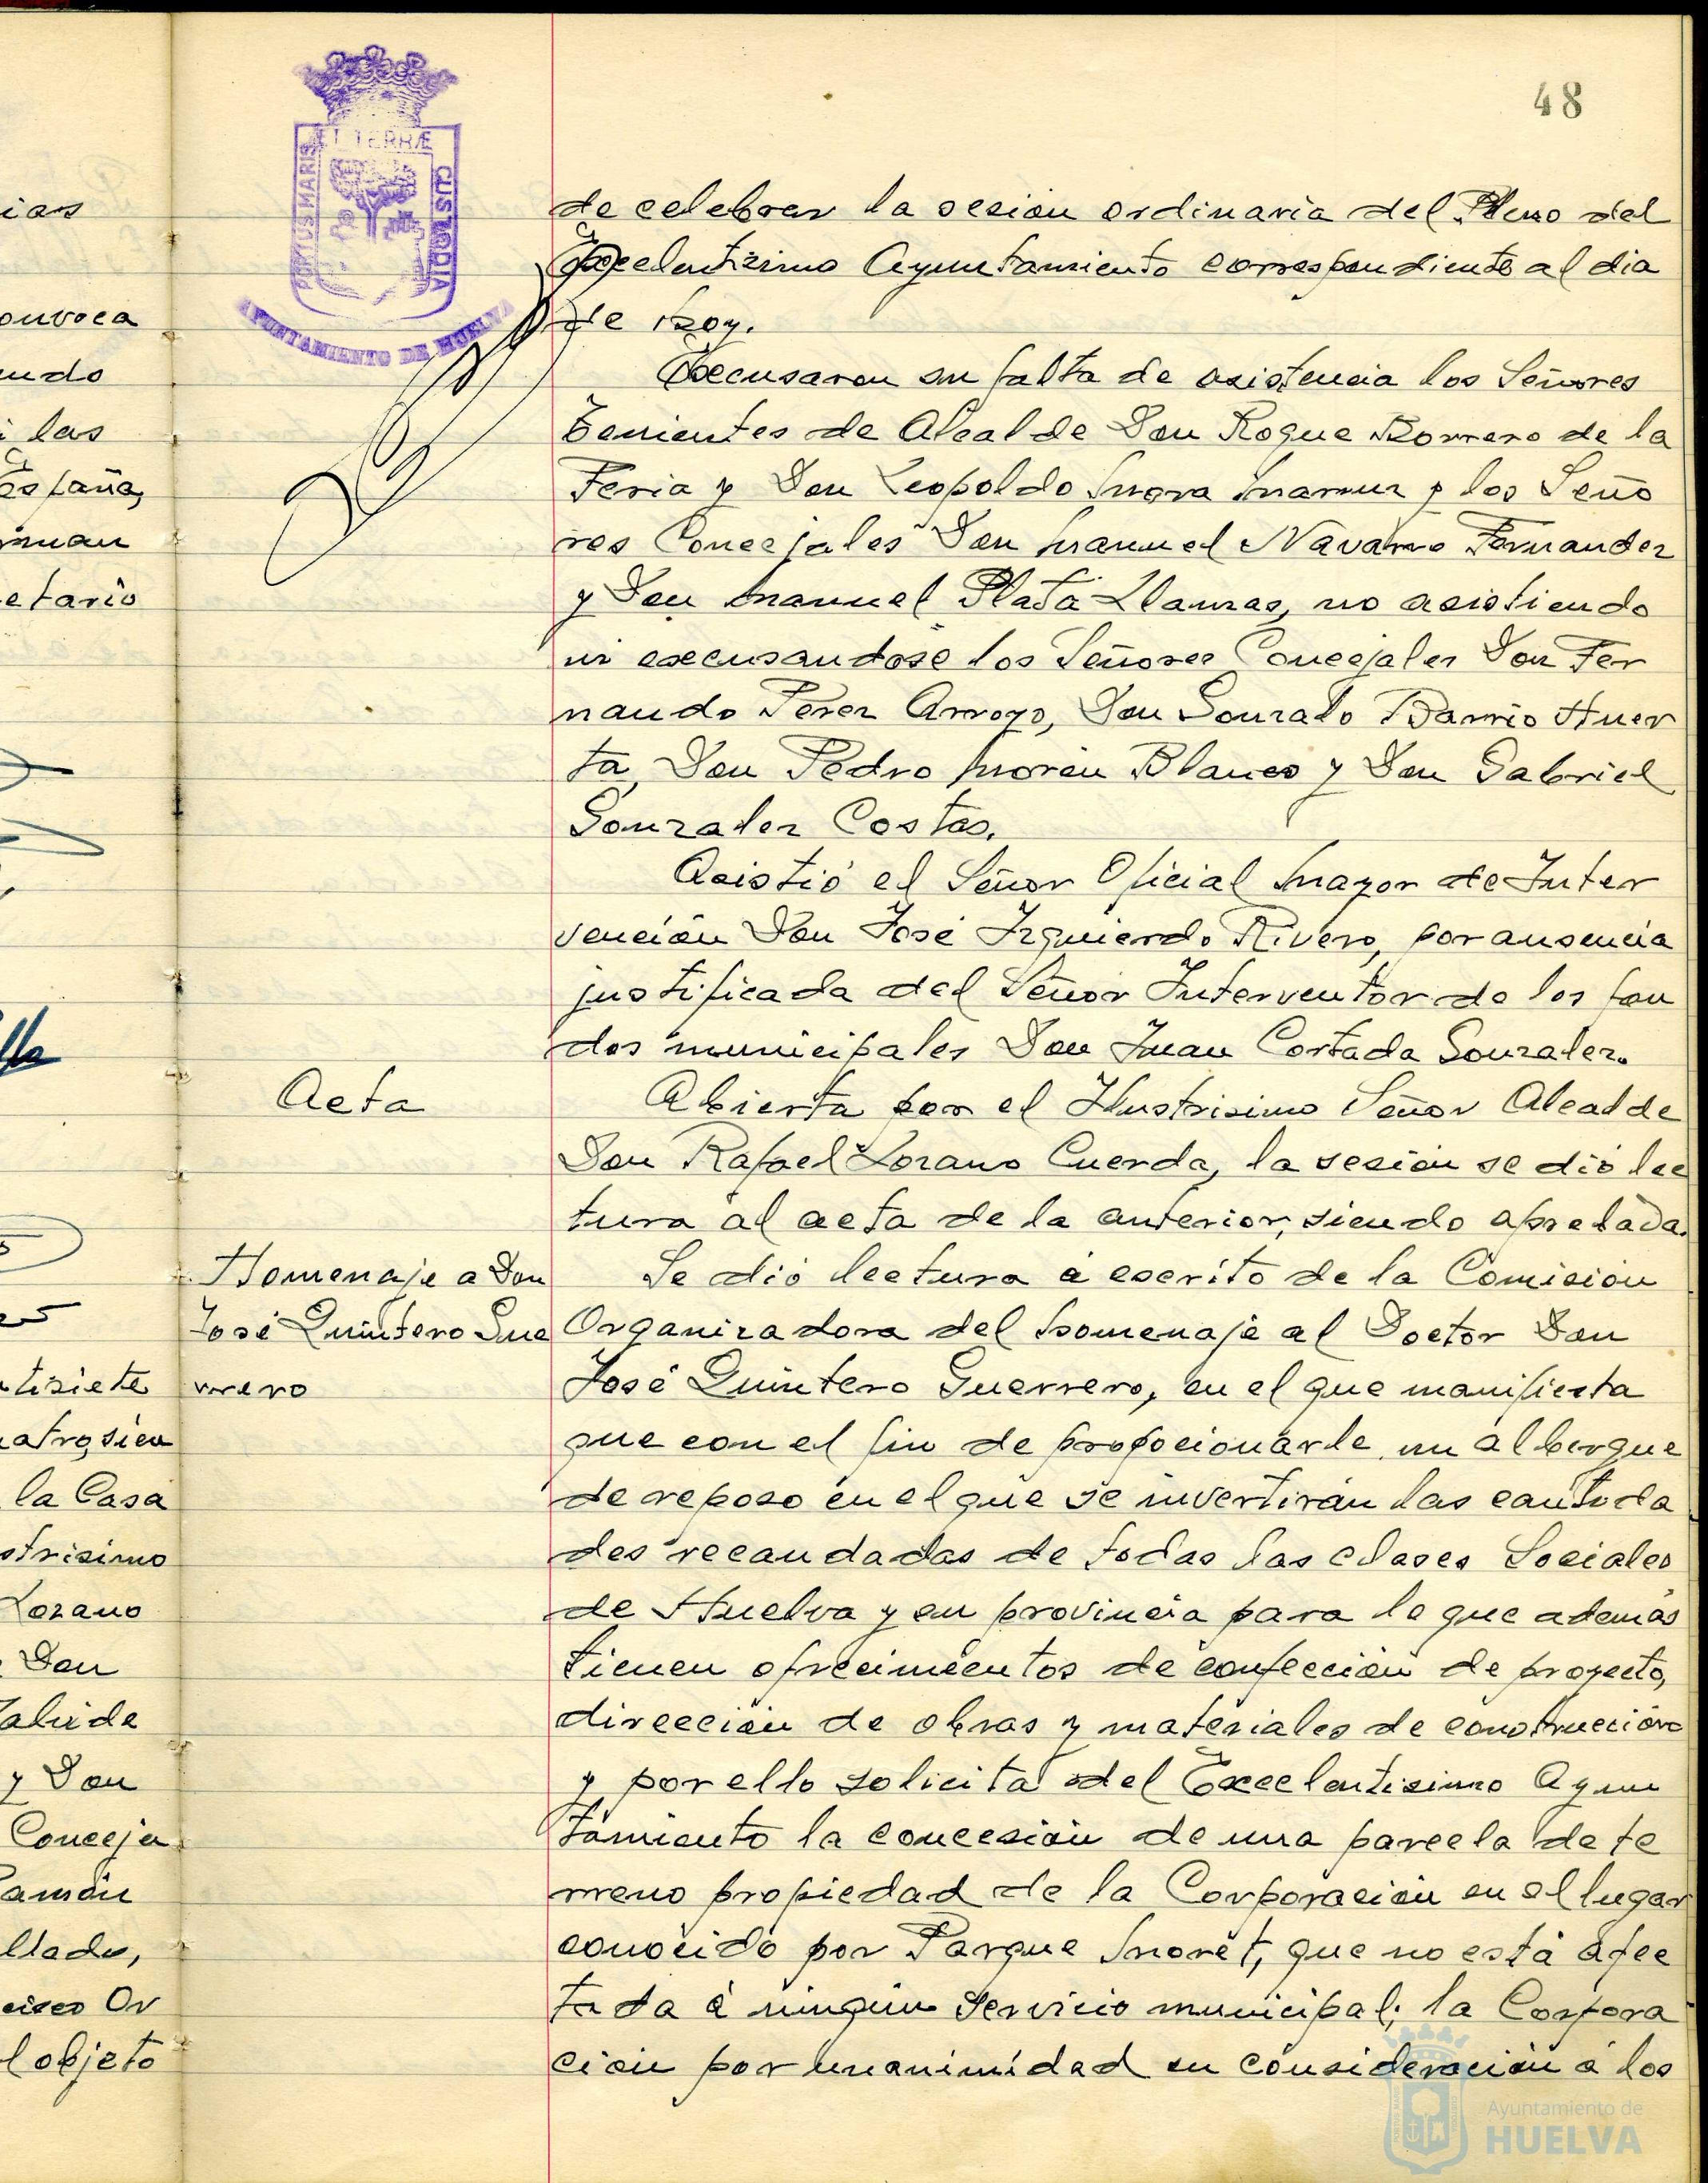 48
PORTUS MARIS
ET TERRÆ
CUSTODIA
AYUNTAMIENTO DE HUELVA
ias
onvoca
ndo
las
España,
etario
tisiete
la Casa
strisimo
Lozano
Don
y Don
Conceja
amón
llado,
l objeto
de celebrar la sesión ordinaria del Pleno del
Excelentisimo Ayuntamiento correspondiente al dia
de hoy.
Excusaron su falta de asistencia los Señores
Tenientes de Alcalde Don Roque Borrero de la
Feria y Don Leopoldo Mora y los Seño
res Concejales Don Manuel Navarro Fernandez
y Don Manuel Plata Llanzas, no asistiendo
ni excusandose los Señores Concejales Don Fer
nando Perez Arroyo, Don Gonzalo Barrio Huer
ta, Don Pedro Morón Blanco y Don Gabriel
Gonzalez Costas.
Asistió el Señor Oficial Mayor de Inter
vención Don José Izquierdo Rivero, por ausencia
justificada del Señor Interventor de los fon
dos municipales Don Juan Cortada Gonzalez.
Acta
Abierta por el Ilustrisimo Señor Alcalde
Don Rafael Lozano Cuerda, la sesión se dió lec
tura al acta de la anterior, siendo aprobada.
Homenaje a Don
José Quintero Gue
rrero
Se dió lectura a escrito de la Comisión
Organizadora del homenaje al Doctor Don
José Quintero Guerrero, en el que manifiesta
que con el fin de propocionarle un albergue
de reposo en el que se invertirán las cantida
des recaudadas de todas las clases Sociales
de Huelva y su provincia para lo que además
tienen ofrecimientos de confección de proyecto,
dirección de obras y materiales de construcción
y por ello solicita del Excelentisimo Ayun
tamiento la concesión de una parcela de te
rreno propiedad de la Corporación en el lugar
conocido por Parque Moret, que no está afec
tada á ningún servicio municipal; la Corpora
ción por unanimidad en consideración á los
Ayuntamiento de
HUELVA